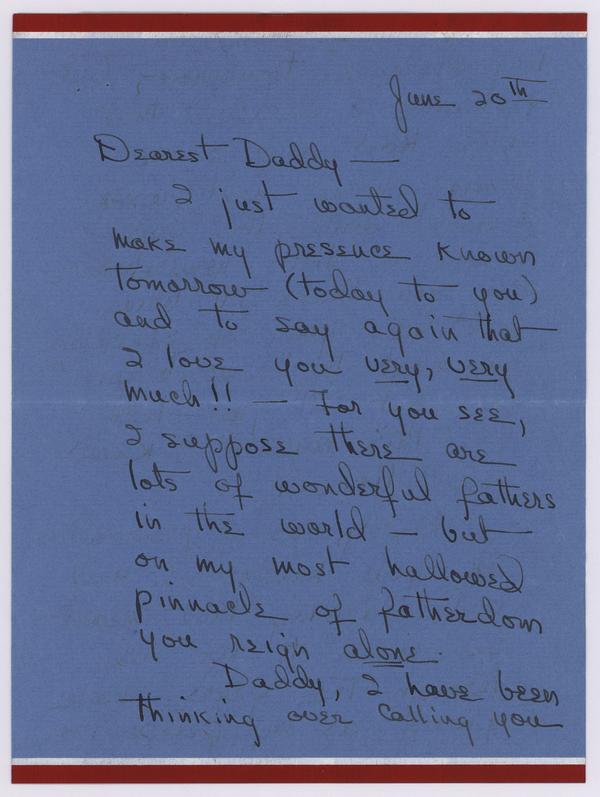 June 20th
Dearest Daddy —
I just wanted to
make my presence known
tomorrow (today to you)
and to say again that
I love you very, very
much!! — For you see,
I suppose there are
lots of wonderful fathers
in the world — but
on my most hallowed
pinnacle of fatherdom
you reign alone.
Daddy, I have been
thinking over calling you